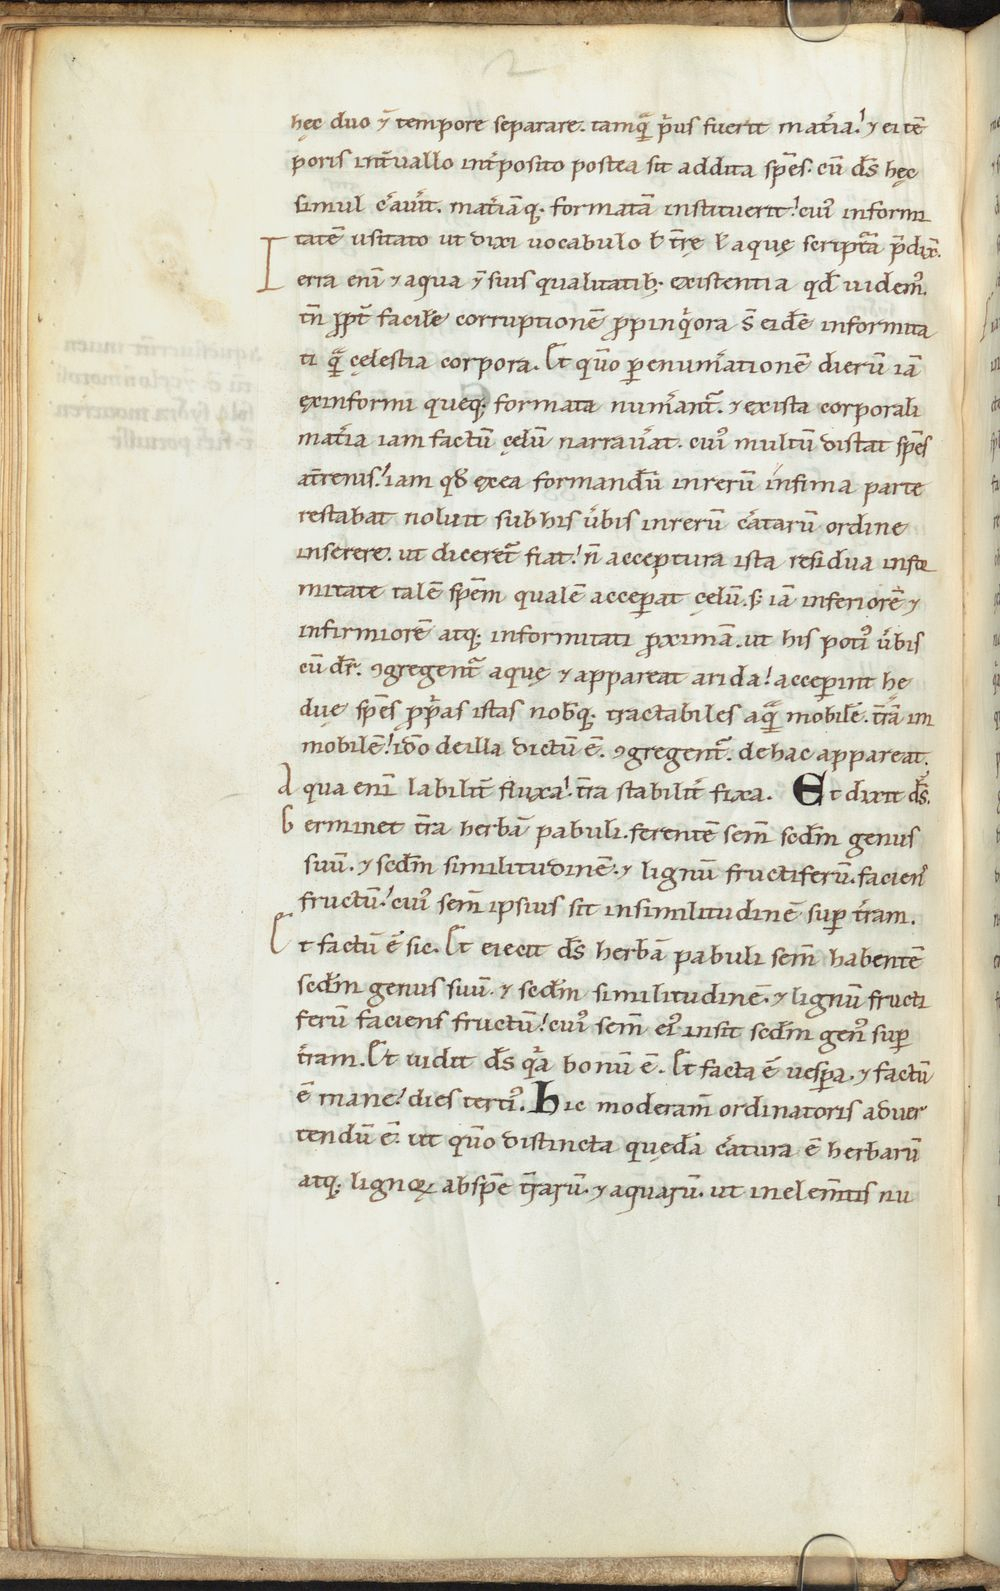 hęc duo ⁊̄ tempore separare. tamq̃ p̃us fuerit mat̃ia.' ⁊ ei tē
poris int̃uallo int̃posito postea sit addita sp̄es. cū d̄s hęc
simul c̃auit. mat̃iāq;. formatā instituerit.' cui᾽ informi
tatē usitato ut dixi uocabulo ł t̄rę ł aquę scriptā p̄dix̄.
Terra eni ⁊ aqua ⁊̄ suis qualitatib;. existentia qđ uidem᾽.
tn̄ ꝓpt̃ facile corruptionē ꝓpinq̃ora s̄ eidē informita
ti q̃ cęlestia corpora. Et qūo ꝑ enum̃ationē dierū iā
ęxinformi queq;. formata num̃ant̃. ⁊ exista corporali
mat̃ia iam factū cęlū narrau̾at. cui᾽ multū distat sp̄es
at̄renis.' iam qđ ęxea formandū inrerū infima parte
restabat noluit sub his u̾bis inrerū c̃atarū ordine
inserere. ut diceret̃ fiat.' n̄ acceptura ista residua info
mitate talē sp̄em qualē acceꝑat cęlū. s; iā inferiorē ⁊
infirmiorē atq;. informitati ꝓximā. ut his poti᾽ u̾bis
cū dr̄. ꝯgregent̃ aquę ⁊ appareat arida.' acceꝑint he
duę sp̄es ꝓp̃as istas nobq;. tractabiles aq̃ mobilē. t̄rā im
mobilē.' iđo de illa dictū ē. ꝯgregent̃. de hac appareat.
Aqua eni labilit̃ fluxa.' t̄ra stabilit̃ fixa. Et dixit d̄s.
Germinet t̄ra herbā pabuli. ferentē sem̄ sedm̄ genus
suū. ⁊ sedm̄ similitudinē. ⁊ lignū fructiferū. facien᾽
fructū.' cui᾽ sem̄ ipsius sit insimilitudinē suꝑ t̄ram.
Et factū ē sic. Et eiecit d̄s herbā pabuli sem̄ habentē
sedm̄ genus suū. ⁊ sedm̄ similitudinē. ⁊ lignū fructi
ferū faciens fructū.' cui᾽ sem̄ ei᾽ insit sedm̄ gen᾽ suꝑ
t̄ram. Et uidit d̄s q̃a bonū ē. Et facta ē uesꝑa. ⁊ factū
ē mane.' dies terti᾽. Hic moderam̄ ordinatoris aduer
tendū ē. ut qūo distincta quędā c̃atura ē herbarū
atq;. lignoꝝ absp̄e t̄rarū. ⁊ aquarū. ut inelem̄tis nu